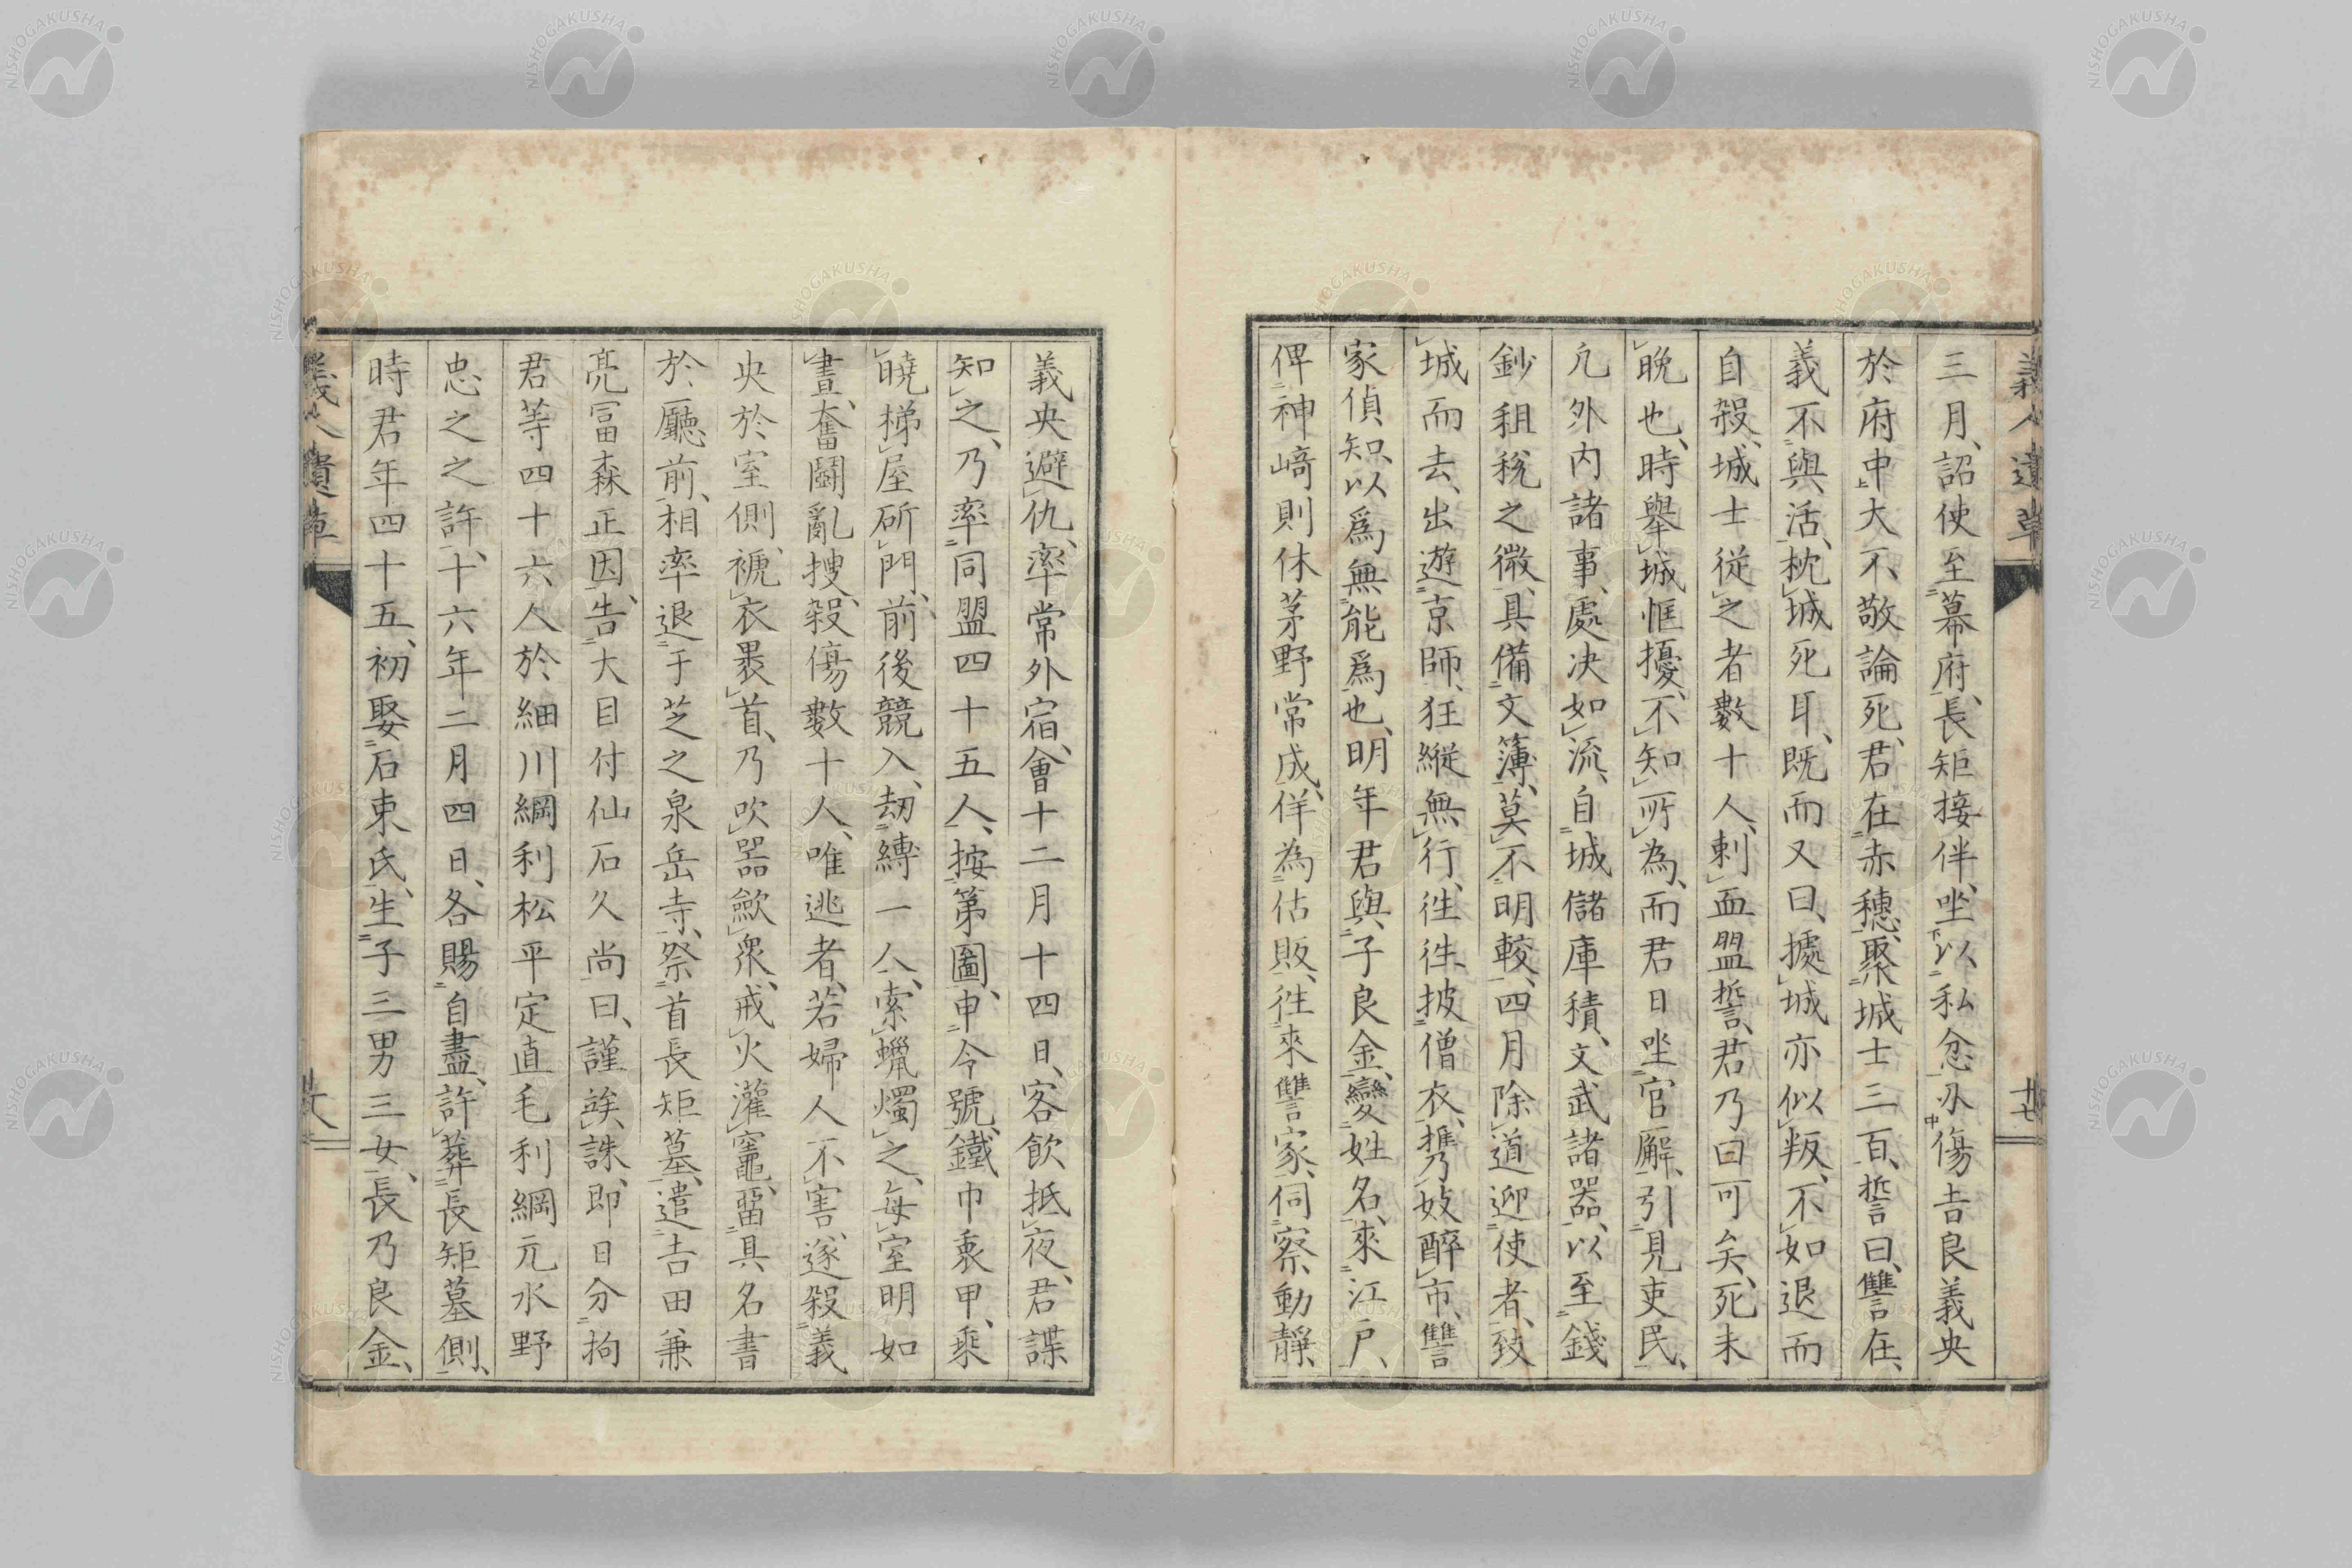 義人遺草
廿七
三月、詔使至幕府、長矩接伴、坐以私忿刅傷吉良義央
於府中大不敬論死、君在赤穗、聚城士三百、誓曰、讐在、
義不與活、枕城死耳、既而又曰、據城亦似叛、不如退而
自殺、城士從之者數十人、刺血盟誓、君乃曰可矣、死未
晚也、時舉城恇擾、不知所為、而君日坐官廨、引見吏民、
凢外內諸事、處决如流、自城儲庫積、文武諸器、以至錢
鈔租稅之微、具備文簿、莫不明較、四月除道迎使者、致
城而去、出遊京師、狂縱無行、徃徃披僧衣、携乃妓醉市、讐
家偵知、以爲無能爲也、明年君與子良金、變姓名、來江戶、
俾神﨑則休茅野常成、佯為估販、徃來讐家、伺察動靜、
義央避仇、率常外宿、會十二月十四日、客飲抵夜、君諜
知之、乃率同盟四十五人、按第圖、申令號、鐵巾衷甲、乘
曉梯屋斫門、前後競入、刼縛一人、索蠟燭之、每室明如
晝、奮鬪亂搜、殺傷數十人、唯逃者、若婦人不害、遂殺義
央於室側、褫衣褁首、乃吹器歛衆、戒火灌竈、畱具名書
於廳前、相率退于芝之泉岳寺、祭首長矩墓、遣吉田兼
亮冨森正因、告大目付仙石久尚曰、謹竢誅、即日分拘
君等四十六人於細川綱利松平定直毛利綱元水野
忠之之許、十六年二月四日、各賜自盡、許葬長矩墓側、
時君年四十五、初娶石束氏、生子三男三女、長乃良金、
義人遺草
廿八